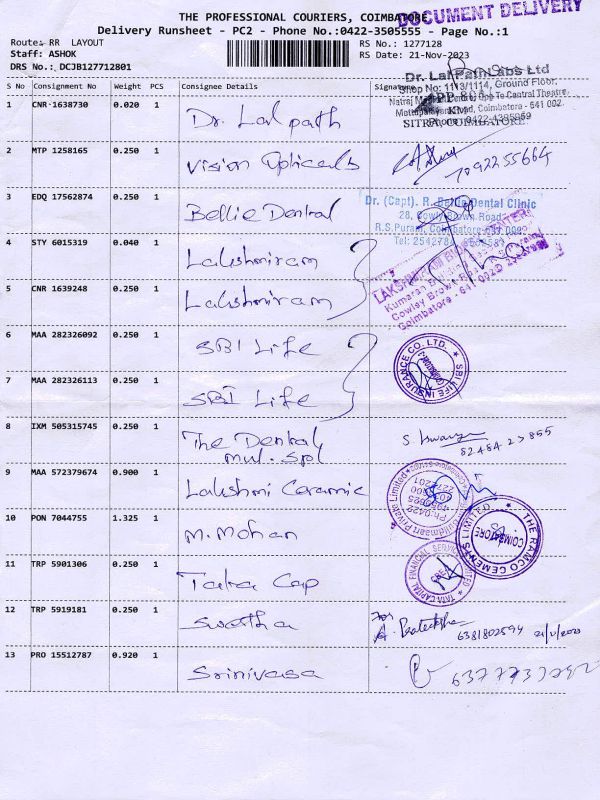 THE PROFESSIONAL COURIERS, COIMBATORE
DOCUMENT DELIVERY
Delivery Runsheet - PC2 - Phone No.:0422-3505555 - Page No.:1
Route: RR LAYOUT
RS No.: 1277128
Staff: ASHOK
RS Date: 21-Nov-2023
DRS No.: DCJB127712801
S No Consignment No Weight PCS Consignee Details Signature
Dr. Lal PathLabs Ltd
Shop No: 113/1114, Ground Floor,
Coimbatore - 641 002.
1 CNR 1638730 0.020 1 Dr. Lal path
2 MTP 1258165 0.250 1 Vision Opticals
3 EDQ 17562874 0.250 1 Bellie Dental
Dr. (Capt). R. Bellie Dental Clinic
28, Cowly Brown Road
R.S.Puram, Coimbatore
4 STY 6015319 0.040 1 Lakshmiram
Kumaran Building
Cowley Brown
Coimbatore - 641 002
5 CNR 1639248 0.250 1 Lakshmiram
6 MAA 282326092 0.250 1 SBI Life
SBI LIFE INSURANCE CO. LTD.
7 MAA 282326113 0.250 1 SBI Life
8 IXM 505315745 0.250 1 The Dental
mul. spl
9 MAA 572379674 0.900 1 Lakshmi Ceramic
10 PON 7044755 1.325 1 M. Mohan
THE RAMCO CEMENTS LIMITED
COIMBATORE
11 TRP 5901306 0.250 1 Tata Cap
TATA CAPITAL FINANCIAL SERVICES LIMITED
12 TRP 5919181 0.250 1 Swatha
For
6381802594
13 PRO 15512787 0.920 1 Srinivasa